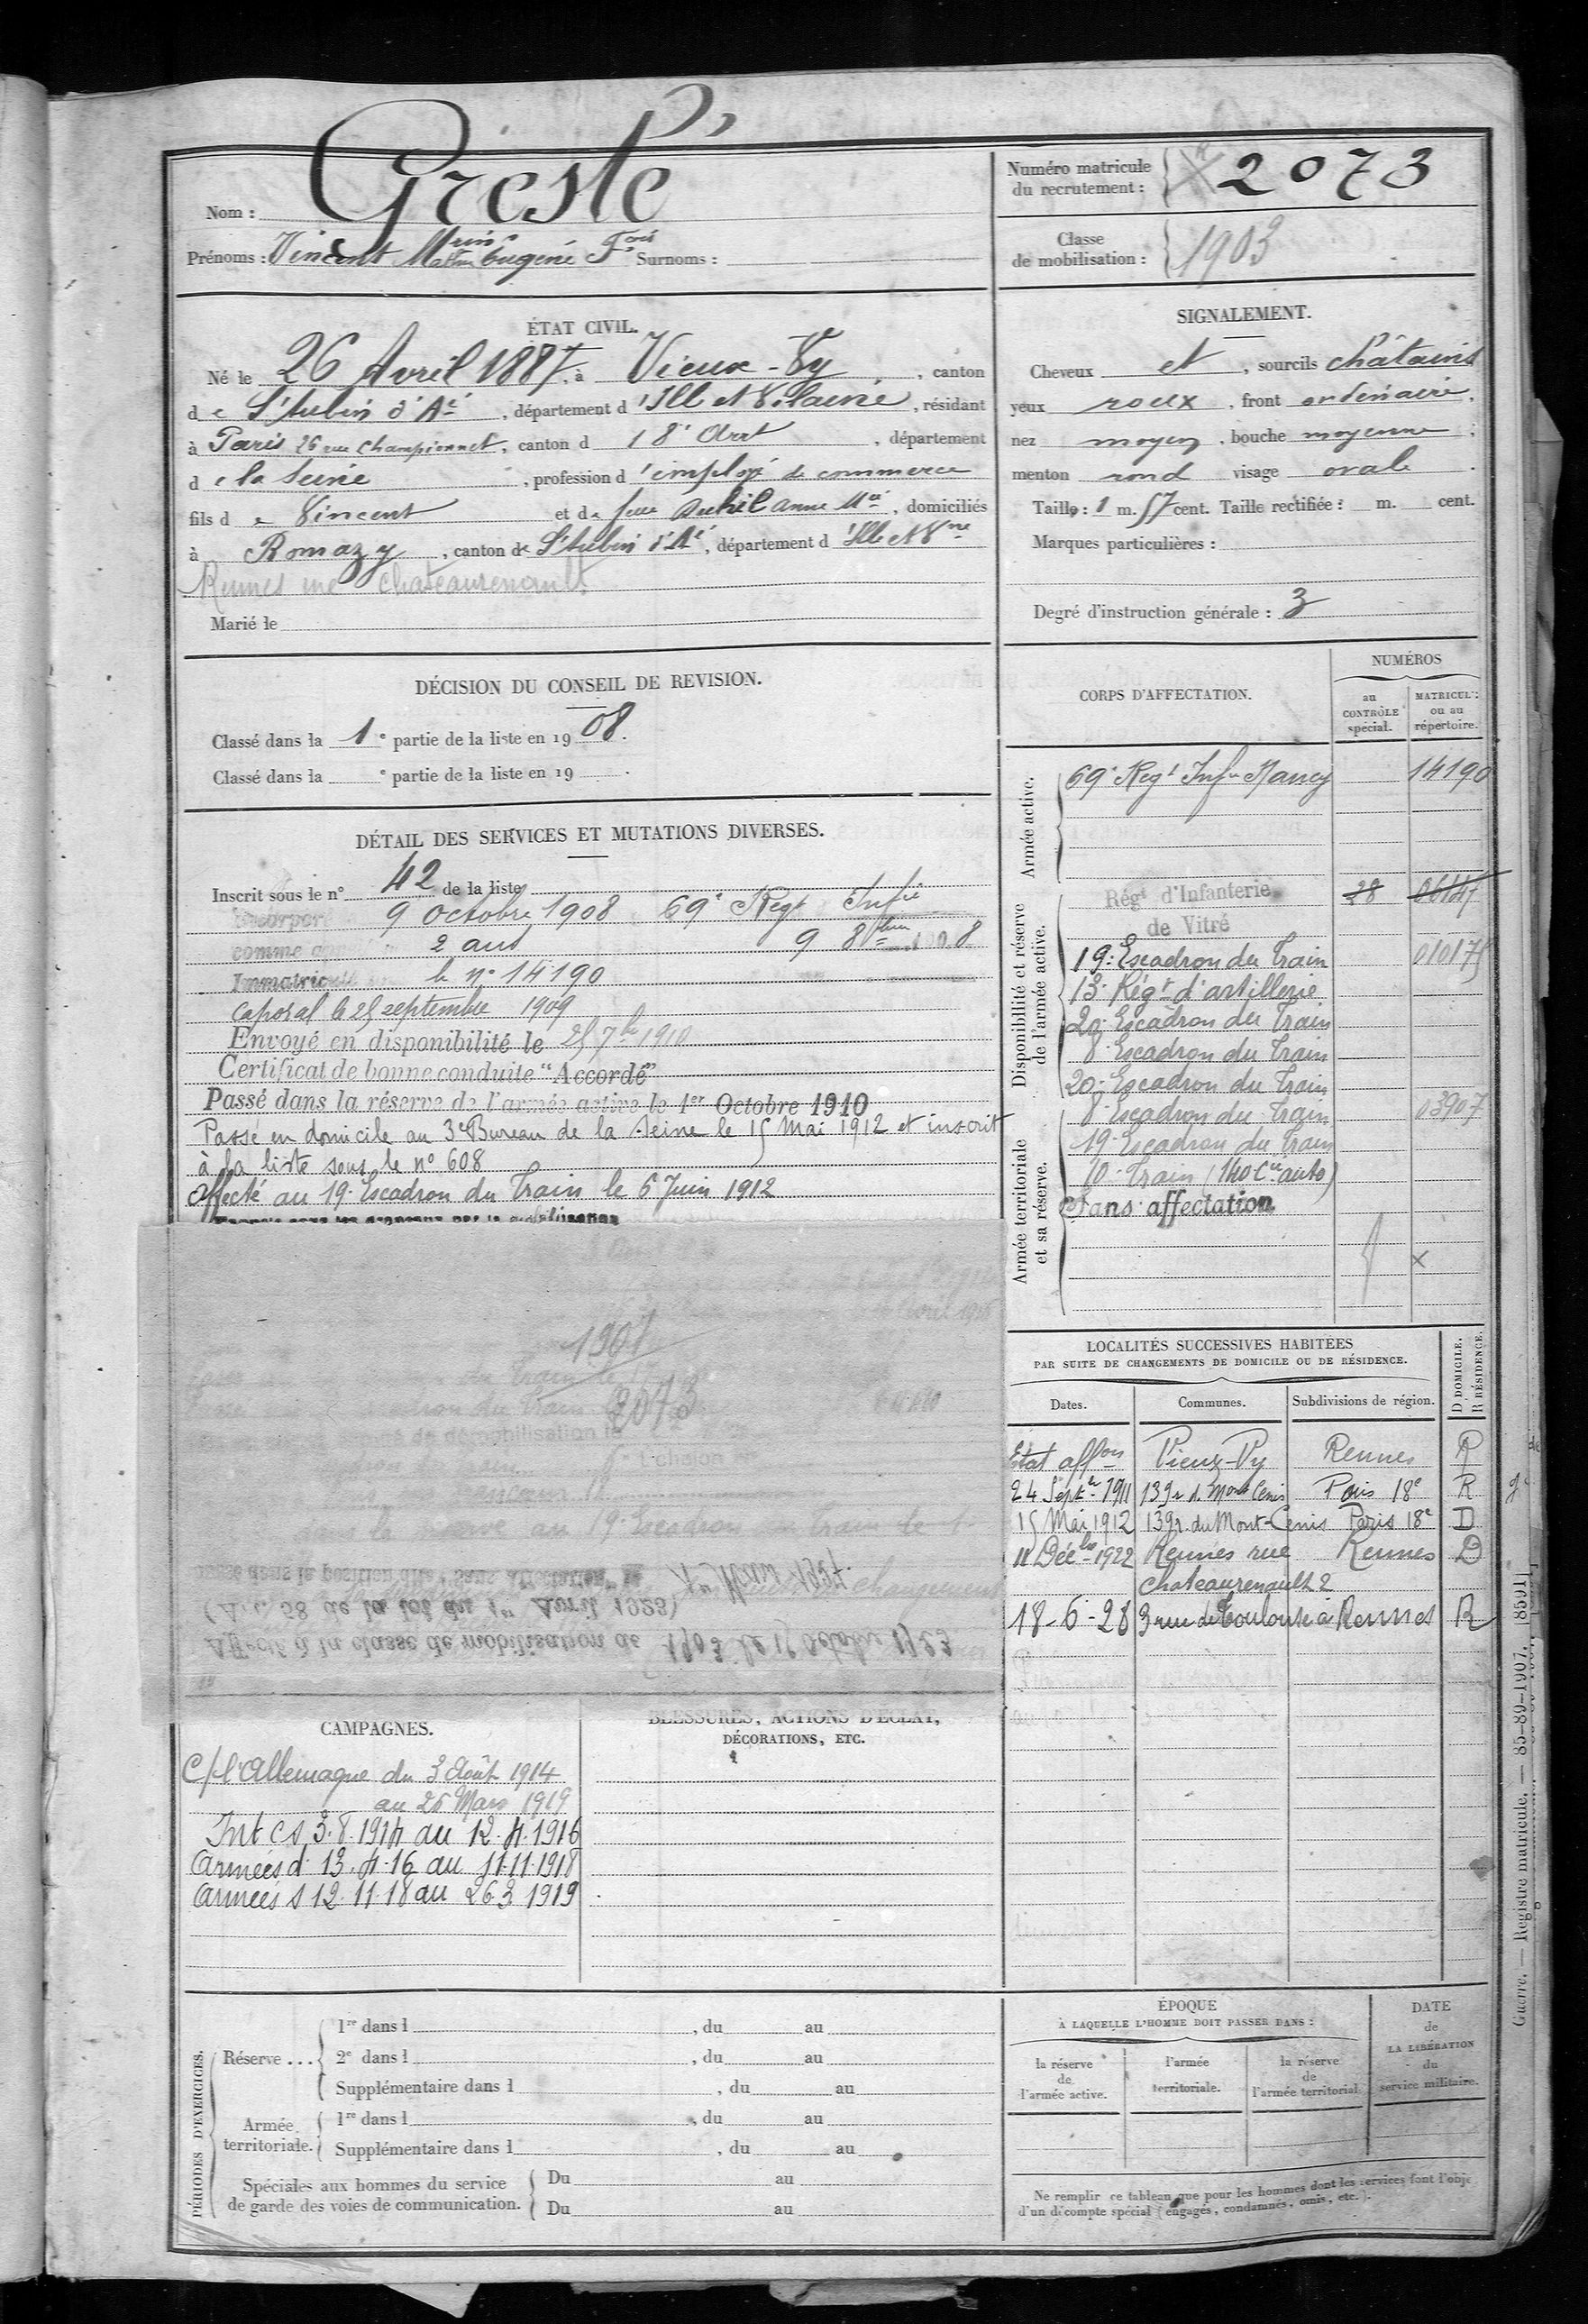 Nom : Gresté
Prénoms : Vincent Eugène Fois Surnoms :
Numéro matricule
du recrutement : 2073
Classe
de mobilisation : 1903
ÉTAT CIVIL.
Né le 26 Avril 1887, à Vieux-Vy, canton
de St Aubin d'Aé, département d'Ille et Vilaine, résidant
à Paris 26 rue Championnet, canton d 18e Arrt, département
de la Seine, profession d'employé de commerce
fils de Vincent et de feue Anne Mie, domiciliés
à Romazy, canton de St Aubin d'Aé, département d'Ille et Vne
Rennes rue Chateaurenault
Marié le
SIGNALEMENT.
Cheveux et, sourcils châtains
yeux roux, front ordinaire,
nez moyen, bouche moyenne,
menton rond visage ovale.
Taille : 1 m. 57 cent. Taille rectifiée : m. cent.
Marques particulières :
Degré d'instruction générale : 3
DÉCISION DU CONSEIL DE REVISION.
Classé dans la 1e partie de la liste en 1908.
Classé dans la e partie de la liste en 19 .
DÉTAIL DES SERVICES ET MUTATIONS DIVERSES.
Inscrit sous le n° 42 de la liste
9 octobre 1908 69e Régt Infie
comme 2 ans 9 8bre 1908
le n° 14190
Caporal le 25 septembre 1909
Envoyé en disponibilité le 25 7bre 1910
Certificat de bonne conduite "Accordé"
Passé dans la réserve de l'armée active le 1er Octobre 1910
Passé en domicile au 3e Bureau de la Seine le 15 Mai 1912 et inscrit
à la liste sous le n° 608
Affecté au 19e Escadron du Train le 6 Juin 1912
1907
2073
CORPS D'AFFECTATION.
NUMÉROS
au
CONTRÔLE
spécial.
MATRICULE
ou au
répertoire.
Armée active.
69e Régt Infie Nancy 14190
Disponibilité et réserve
de l'armée active.
Régt d'Infanterie 28 06147
de Vitré
19e Escadron du Train 010175
13e Régt d'artillerie
20e Escadron du Train
8e Escadron du Train
20e Escadron du Train
Armée territoriale
et sa réserve.
8e Escadron du Train 03907
19e Escadron du Train
10e Train (140 Cie auto)
Sans affectation
LOCALITÉS SUCCESSIVES HABITÉES
PAR SUITE DE CHANGEMENTS DE DOMICILE OU DE RÉSIDENCE.
Dates. Communes. Subdivisions de région.
D. DOMICILE.
R. RÉSIDENCE.
Vieux-Vy Rennes R
24 Septbre 1911 139 r. d. Mont Cenis Paris 18e R
15 Mai 1912 139 r. du Mont-Cenis Paris 18e D
11 Décbre 1922 Rennes rue Rennes D
Chateaurenault 2
18-6-28 3 rue de Toulouse à Rennes R
passé dans la position dite "Sans affectation" le
(A. 58 de la loi du 1er Avril 1923)
Affecté à la classe de mobilisation de 1903 le 15 Octobre 1923
CAMPAGNES.
C/ l'Allemagne du 3 Août 1914
au 26 Mars 1919
Int CS 3.8.1914 au 12.4.1916
Armées d 13.4.16 au 11.11.1918
Armées s 12.11.18 au 26 3 1919
BLESSURES, ACTIONS D'ÉCLAT,
DÉCORATIONS, ETC.
PÉRIODES D'EXERCICES.
Réserve ...
1re dans l , du au
2e dans l , du au
Supplémentaire dans l , du au
Armée
territoriale.
1re dans l , du au
Supplémentaire dans l , du au
Spéciales aux hommes du service
de garde des voies de communication.
Du au
Du au
ÉPOQUE
À LAQUELLE L'HOMME DOIT PASSER DANS :
la réserve
de
l'armée active.
l'armée
territoriale.
la réserve
de
l'armée territorial
DATE
de
LA LIBÉRATION
du
service militaire.
Ne remplir ce tableau que pour les hommes dont les services font l'obje
d'un décompte spécial (engagés, condamnés, omis, etc.).
Guerre. — Registre matricule. — 85-89-1907. [8591]